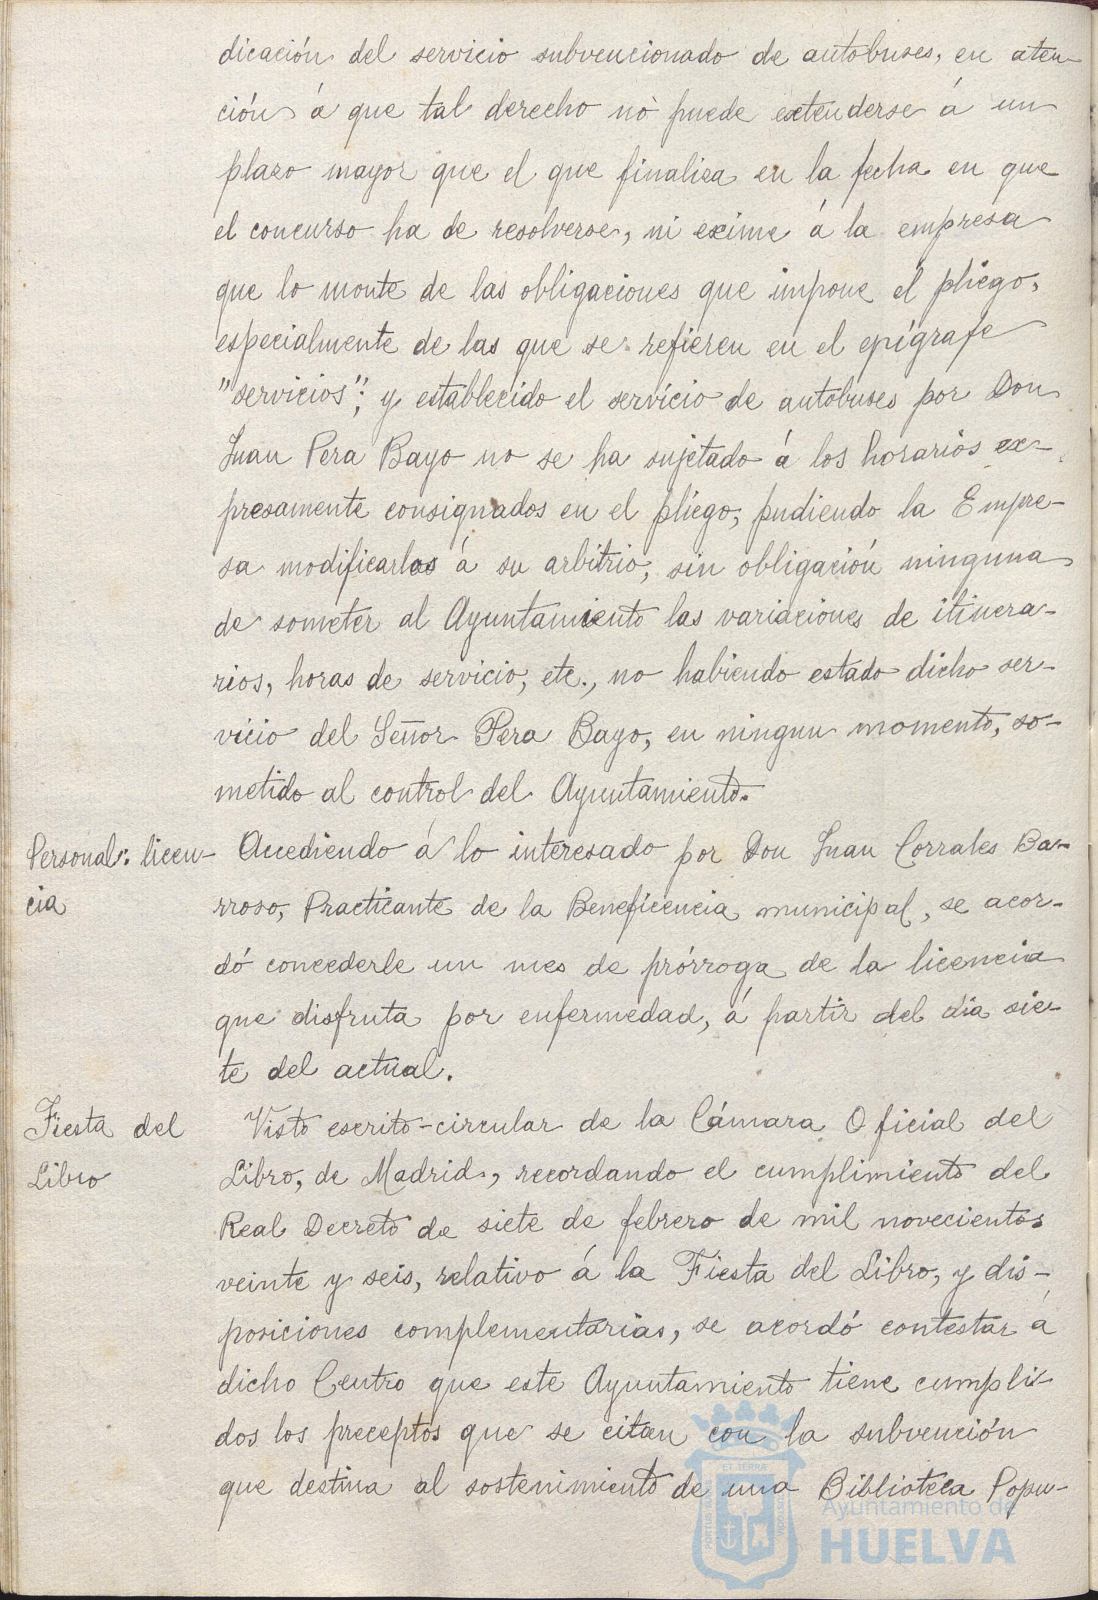 dicación del servicio subvencionado de autobuses, en aten-
ción á que tal derecho no puede extenderse á un
plazo mayor que el que finaliza en la fecha en que
el concurso ha de resolverse, ni exime á la empresa
que lo monte de las obligaciones que impone el pliego,
especialmente de las que se refieren en el epígrafe
"servicios"; y establecido el servicio de autobuses por Don
Juan Pera Bayo no se ha sujetado á los horarios ex-
presamente consignados en el pliego, pudiendo la Empre-
sa modificarlos á su arbitrio, sin obligación ninguna
de someter al Ayuntamiento las variaciones de itinera-
rios, horas de servicio, etc., no habiendo estado dicho ser-
vicio del Señor Pera Bayo, en ningun momento, so-
metido al control del Ayuntamiento.
Personal: licen-
cia
Accediendo á lo interesado por Don Juan Corrales Ba-
rroso, Practicante de la Beneficencia municipal, se acor-
dó concederle un mes de prórroga de la licencia
que disfruta por enfermedad, á partir del día sie-
te del actual.
Fiesta del
Libro
Visto escrito-circular de la Cámara Oficial del
Libro, de Madrid, recordando el cumplimiento del
Real Decreto de siete de febrero de mil novecientos
veinte y seis, relativo á la Fiesta del Libro, y dis-
posiciones complementarias, se acordó contestar á
dicho Centro que este Ayuntamiento tiene cumpli-
dos los preceptos que se citan con la subvención
que destina al sostenimiento de una Biblioteca Popu-
ET TERRA
PORTUS MARIS
CUSTODIA
Ayuntamiento de
HUELVA